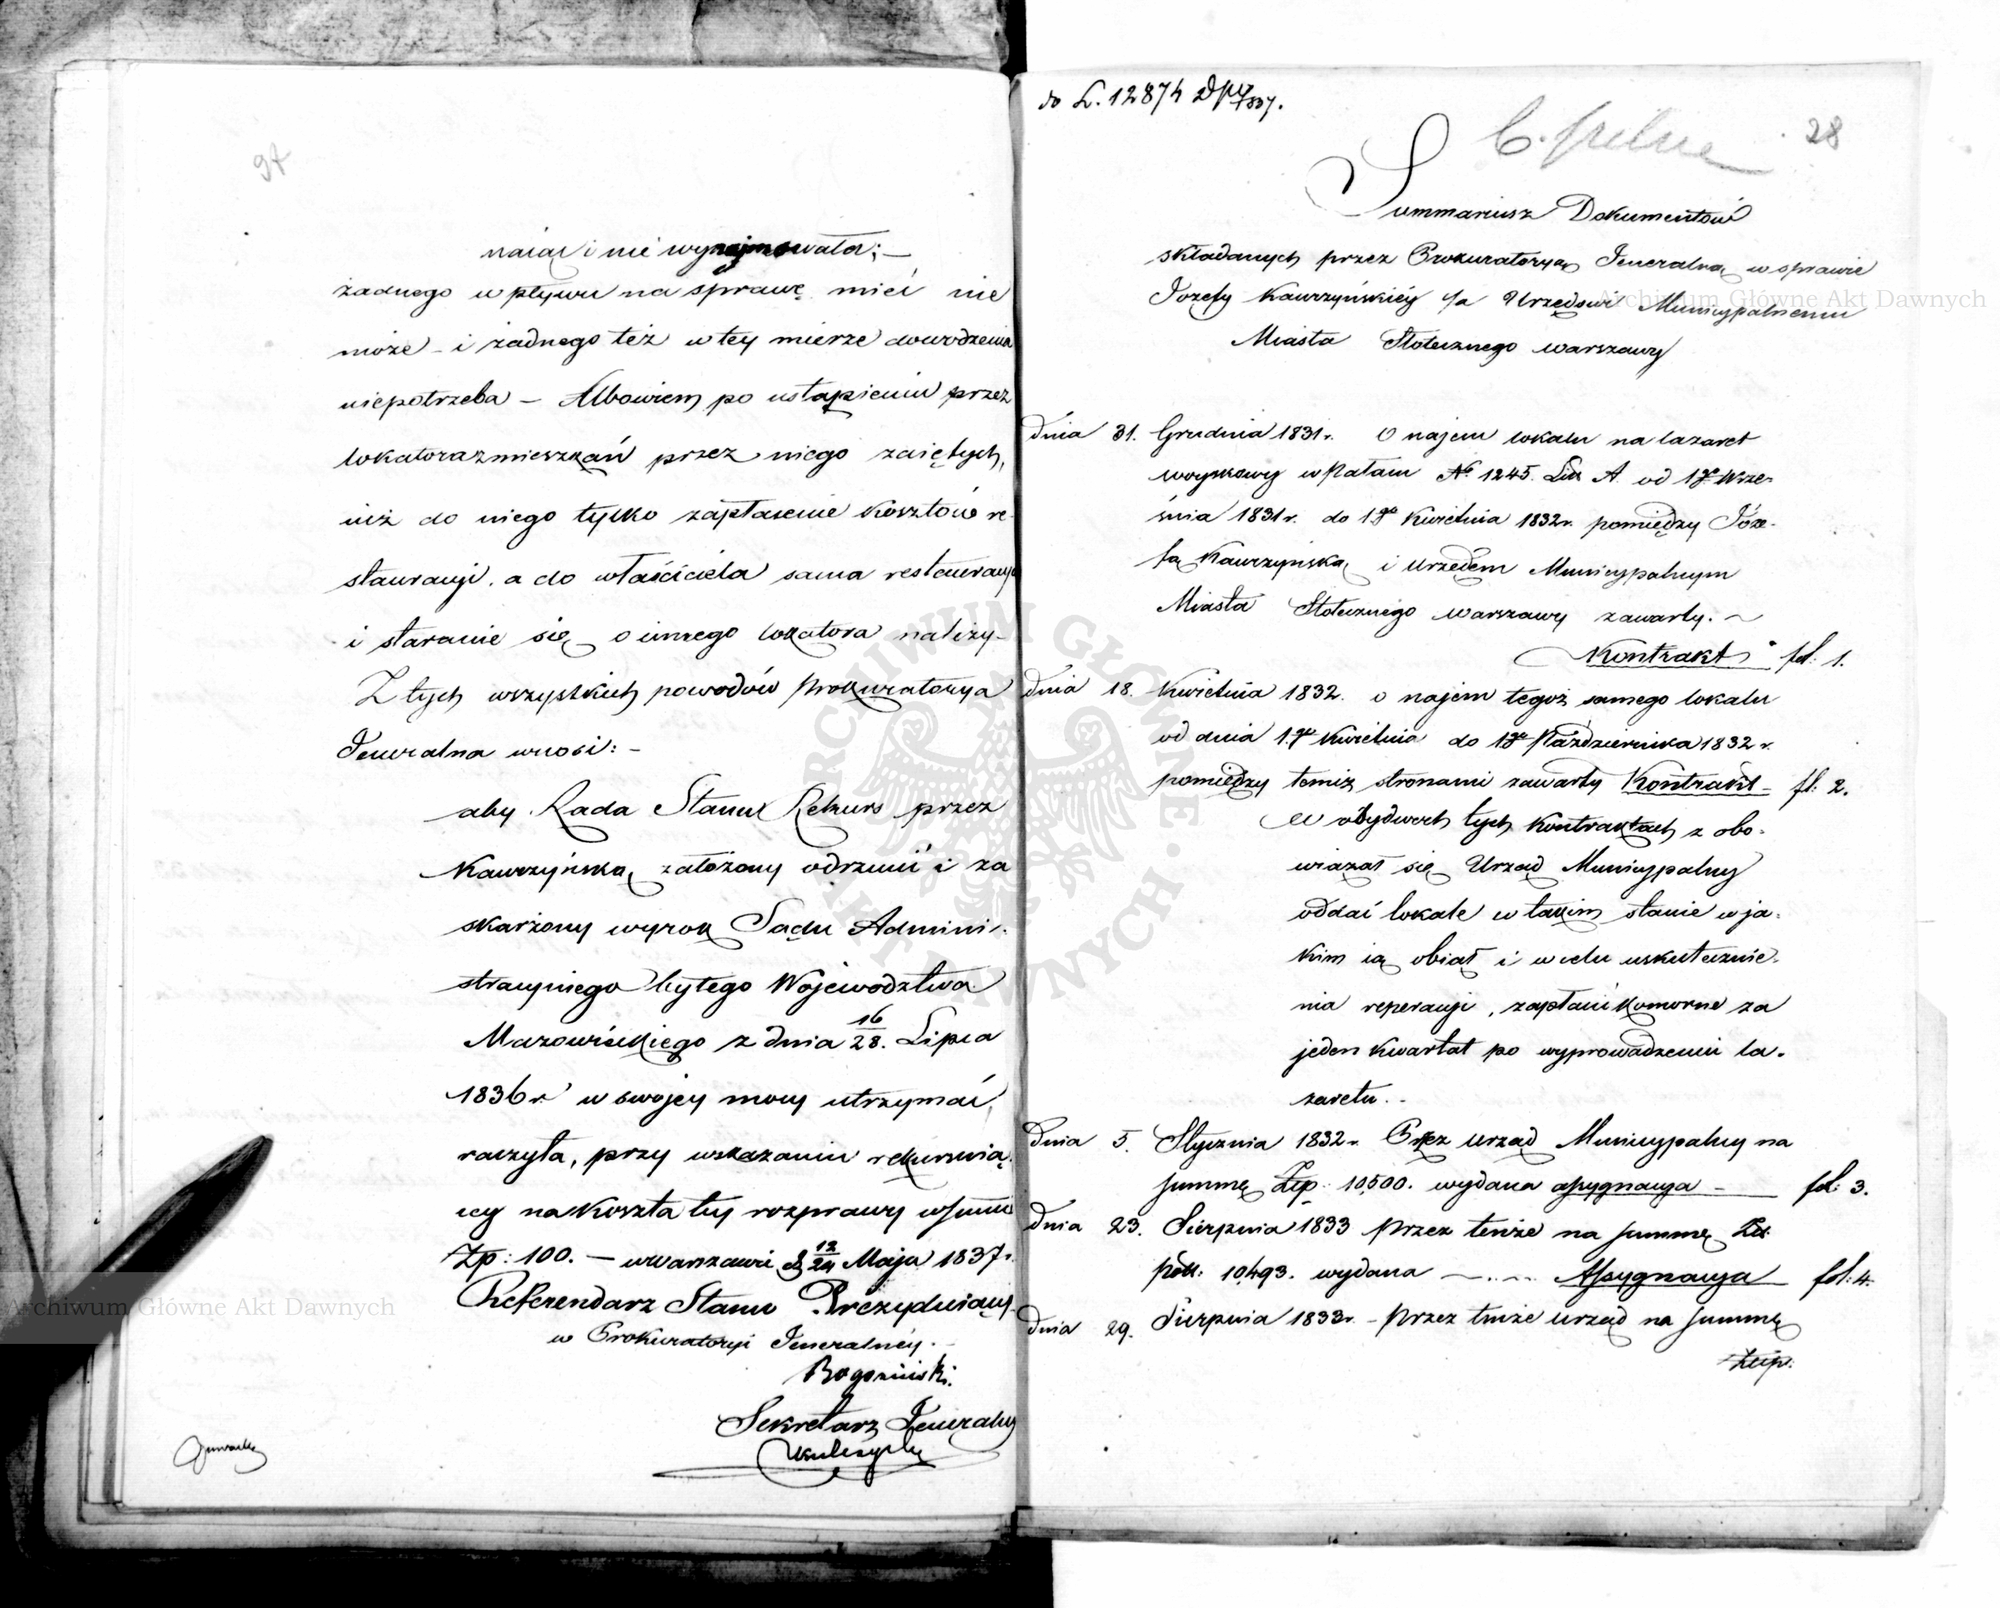 97
naiąć i nie wynajmowała; —
żadnego wpływu na sprawę mieć nie
może – i żadnego też w tey mierze dowodzenia
niepotrzeba – Albowiem po ustąpieniu przez
lokatora z mieszkań przez niego zaiętych,
iuż do niego tylko zapłacenie kosztów re-
stauracji, a do właściciela sama restauracya
i staranie się o innego lokatora należy –
Z tych wszystkich powodów Prokuratorya
Jeneralna wnosi: –
aby Rada Stanu Rekurs przez
Kawrzyńską założony odrzucić i za
skarżony wyrok Sądu Admini-
stracyinego byłego Województwa
Mazowieckiego z dnia 16/28. Lipca
1836 r. w swojey mocy utrzymać
raczyła, przy wskazaniu rekuruią-
cey na koszta tey rozprawy w summie
Zp: 100. — w Warszawie d 12/24 Maja 1837 r.
Referendarz Stanu Prezyduiący
w Prokuratoryi Jeneralnéy.
Sekretarz Jeneralny
do L. 12874 1837.
28
C. pilne
Summariusz Dokumentów
składanych przez Prokuratoryą Jeneralną w sprawie
Józefy Kawrzyńskiéy c/a Urzędowi Municypalnemu
Miasta Stołecznego Warszawy
dnia 31. Grudnia 1831 r. O najem lokalu na lazaret
woyskowy w Pałacu No 1245. Lit A. od 1go Wrze-
śnia 1831 r. do 1go Kwietnia 1832 r. pomiędzy Józe-
fą Kawrzyńską i Urzędem Municypalnym
Miasta Stołecznego Warszawy zawarty. ~
Kontrakt fol: 1.
dnia 18. Kwietnia 1832. o najem tegoż samego lokalu
od dnia 1go Kwietnia do 1go Października 1832 r.
pomiędzy temiż stronami zawarty Kontrakt – fl: 2.
W obydwoch tych Kontraktach z obo-
wiązał się Urząd Municypalny
oddać lokale w takim stanie w ja-
kim ią obiął i w celu uskutecznie-
nia reperacji, zapłacić komorne za
jeden kwartał po wyprowadzeniu la-
zaretu. –
dnia 5. Stycznia 1832 r. Przez Urząd Municypalny na
summę Złp. 10,500. wydana assygnacya — fol: 3.
dnia 23. Sierpnia 1833 przez tenże na summę Zł.
pol: 10,493. wydana — Assygnacya fol: 4.
dnia 29. Sierpnia 1833 r. – Przez tenże urząd na summę
Złp.
Archiwum Główne Akt Dawnych
Archiwum Główne Akt Dawnych
ARCHIWUM GŁÓWNE AKT DAWNYCH